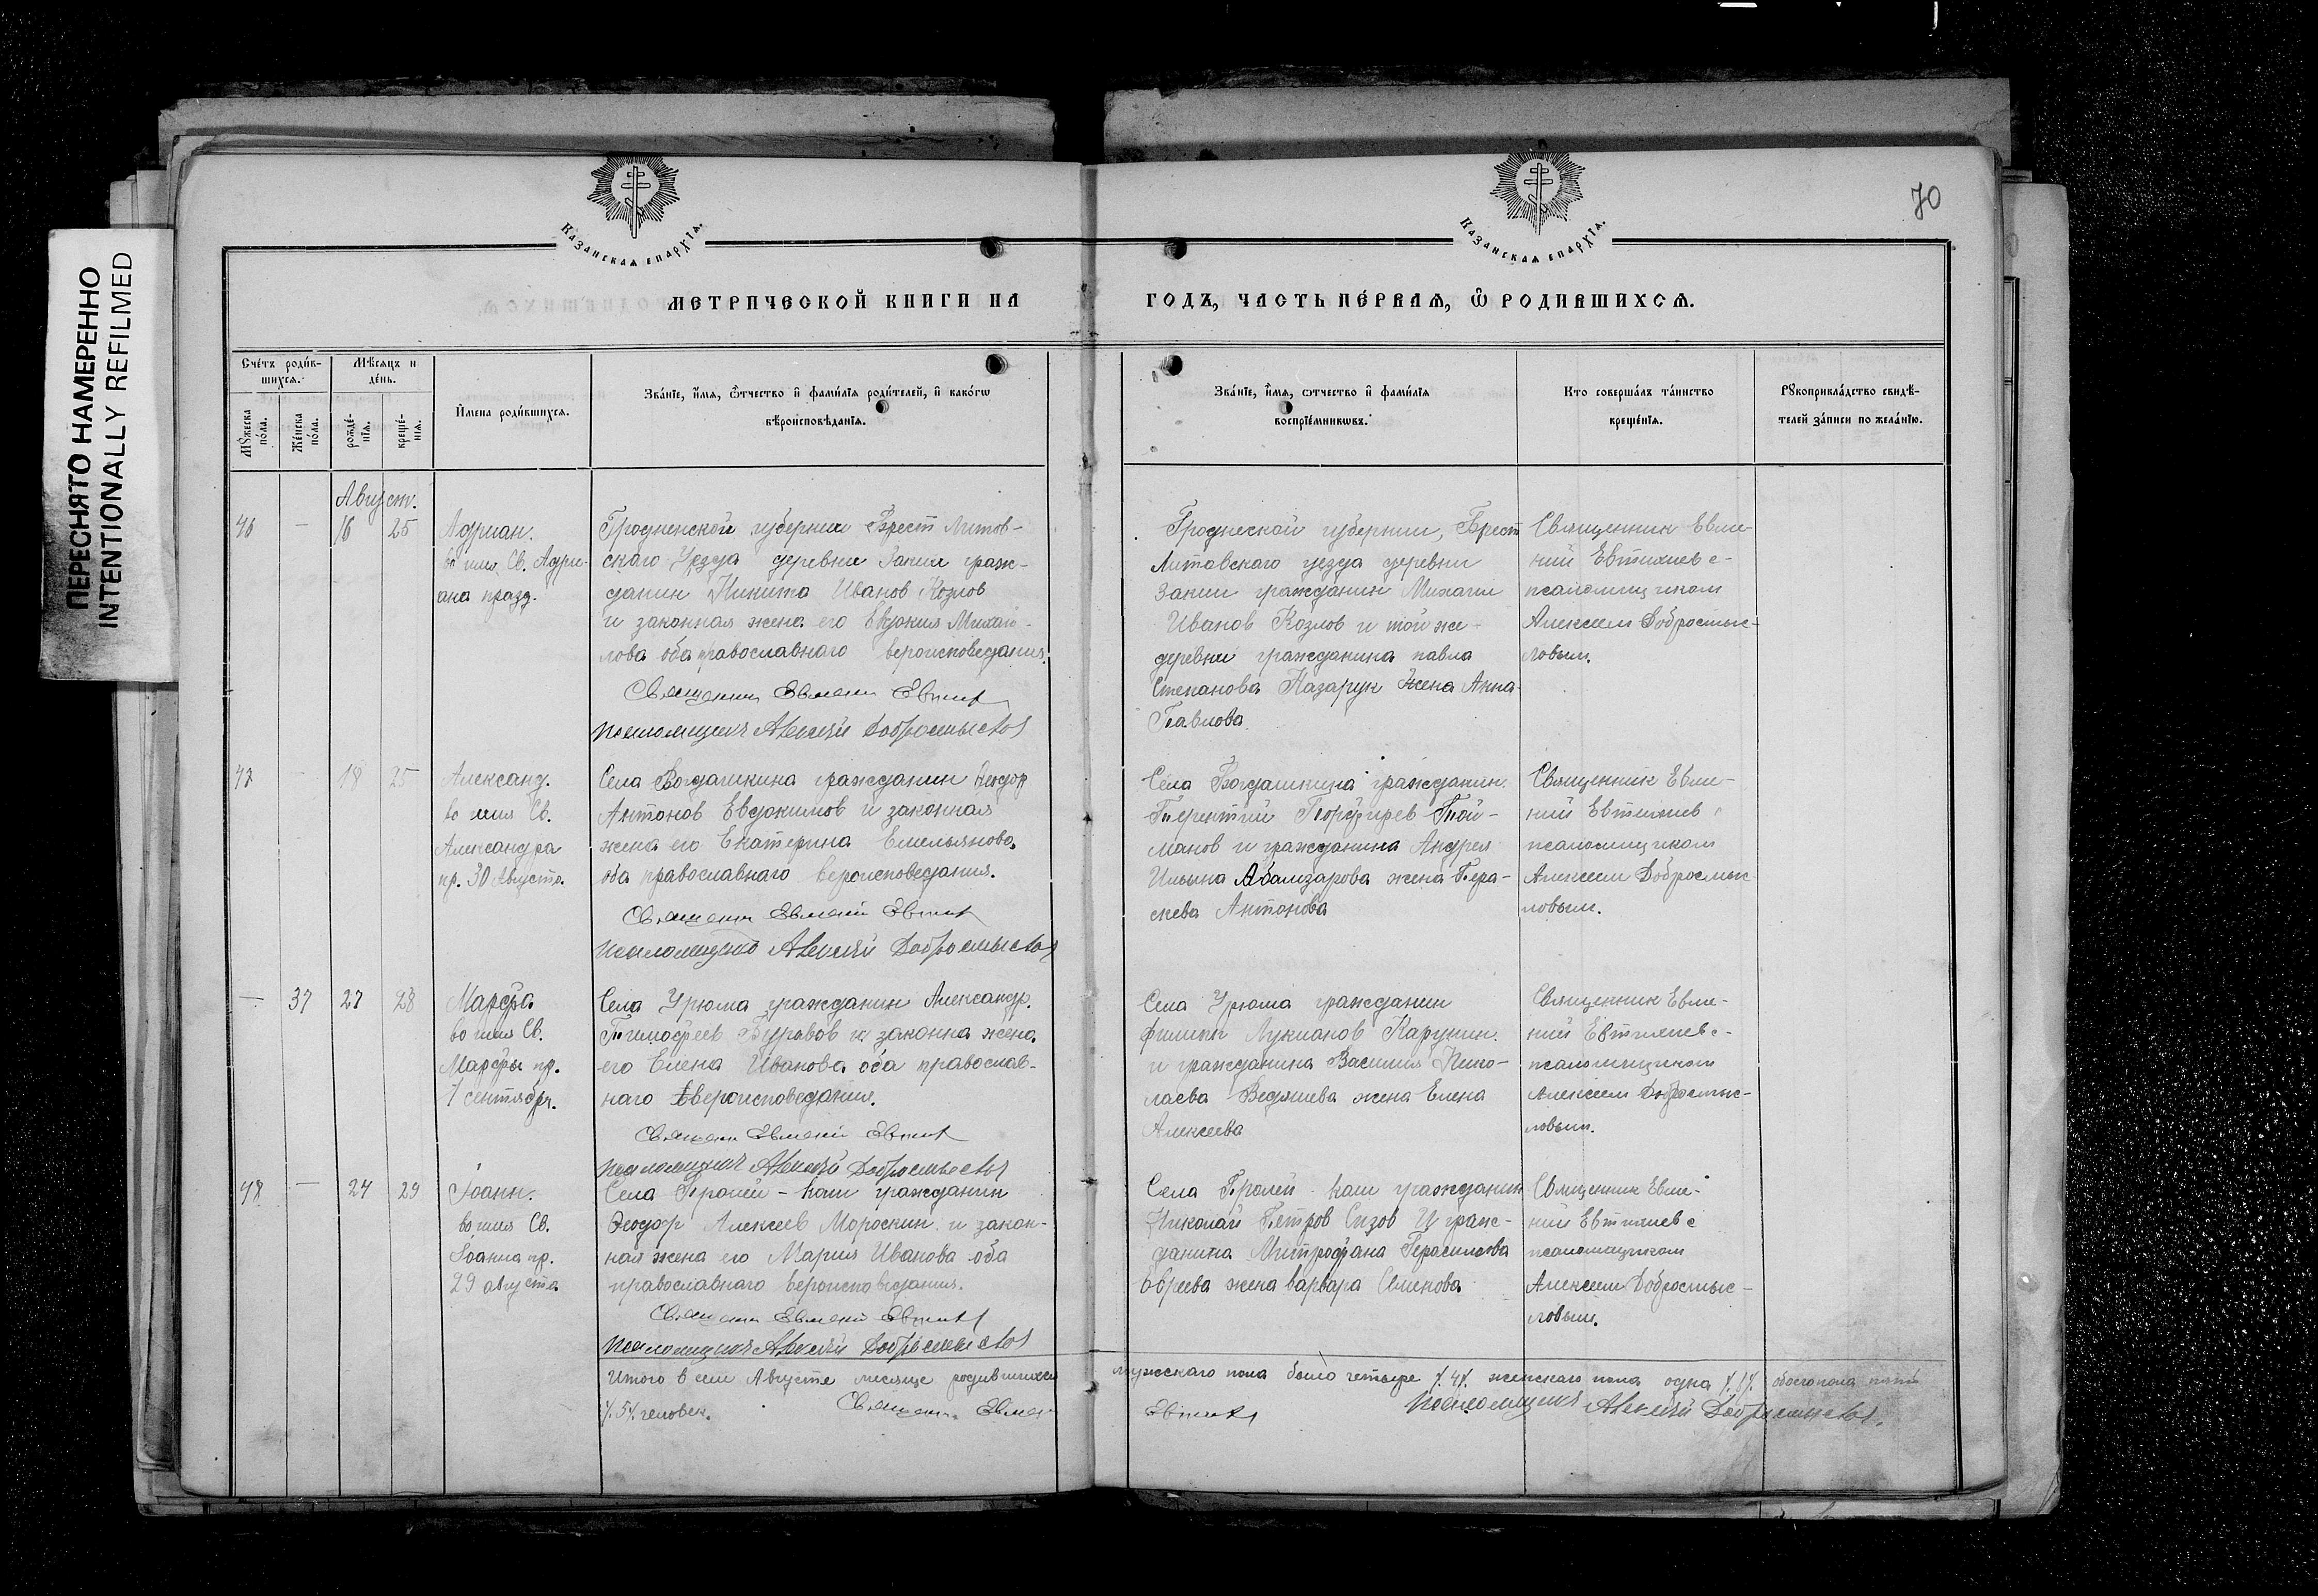 ПЕРЕСНЯТО НАМЕРЕННО
INTENTIONALLY REFILMED
70
КАЗАНСКАЯ ЕПАРХІЯ.
КАЗАНСКАЯ ЕПАРХІЯ.
МЕТРИЧЕСКОЙ КНИГИ НА
ГОДЪ, ЧАСТЬ ПЕ́РВАЯ, Ѡ РОДИВШИХСЯ.
Сче́тъ роди́в-
шихся.
Мѣ́сяцъ и
де́нь.
Мꙋ́жеска
по́ла.
Же́нска
по́ла.
рожде́-
нїя.
креще́-
нїя.
И҆мена роди́вшихся.
Зва́нїе, и҆́мя, ѻ҆́тчество и҆ фами́лїя роди́телей, и҆ како́гѡ
вѣроисповѣ́данїя.
Зва́нїе, и҆́мя, ѻ҆тчество и҆ фами́лїя
воспрїе́мникѡвъ.
Кто соверша́лъ та́инство
креще́нїя.
Рꙋкоприкла́дство свидѣ́-
телей за́писи по жела́нїю.
Август.
46 — 16 25 Адриан.
во имя Св. Адри-
ана празд.
Гродненской губернии Брест Литов-
скаго Уезда деревни Закии граж-
данин Никита Иванов Козлов
и законная жена его Евдокия Михаи-
лова оба православнаго вероисповедания.
Священник Евмений Евтих
псаломщикъ Алексѣй Добросмыслов
Гроднеской губернии, Брест
Литовскаго уезда деревни
Закии гражданин Михаил
Иванов Козлов и той же
деревни гражданина павла
Степанова Назарук жена Анна
Павлова
Священник Евме-
ний Евтихиев с
псаломщиком
Алексеем Добросмыс-
ловым.
47 — 18 25 Александ.
во имя Св.
Александра
пр. 30 Августа.
Села Богдашкина гражданин Феодор
Антонов Евдокимов и законная
жена его Екатерина Емельянова.
оба православнаго вероисповедания.
Священн Евмений Евтих
псаломщикъ Алексѣй Добросмыслов
Села Богдашкина гражданин
Терентий Порфирев Той-
манов и гражданина Андрея
Ильина Абамзарова жена Пера-
скева Антонова
Священник Евме-
ний Евтихиев с
псаломщиком
Алексеем Добросмыс
ловым.
— 37 27 28 Марфа
во имя Св.
Марфы пр.
1 сентября.
Села Урюма гражданин Александр.
Тимофеев Журавов и законна жена.
его Елена Иванова оба православ-
наго вероисповедания.
Священн Евмений Евтих
псаломщикъ Алексѣй Добросмыслов
Села Урюма гражданин
филипп Лукианов Карунин.
и гражданина Василия Нико-
лаева Ведяшева жена Елена
Алексеева
Священник Евме-
ний Евтихиев с
псаломщиком
Алексеем Добросмыс-
ловым.
48 — 24 29 Іоанн.
во имя Св.
Іоанна пр.
29 августа.
Села Пролей-каши гражданин
Феодор Алексеев Мороскин и закон-
ная жена его Мария Иванова оба
православнаго вероисповедания.
Священн Евмений Евтих
псаломщикъ Алексѣй Добросмыслов
Села Пролей-каши гражданин
Николай Петров Сизов И граж-
данина Митрофана Герасимова
Евреева жена варвара Семенова
Священник Евме-
ний Евтихиев с
псаломщиком
Алексеем Добросмыс-
ловым.
Итого в сем Августе месяце родившихся мужскаго пола было четыре /.4/. женскаго пола одна /.1/. обоего пола пять
/.5/. человек. Священн. Евмен Евтих псаломщикъ Алексѣй Добросмыслов.